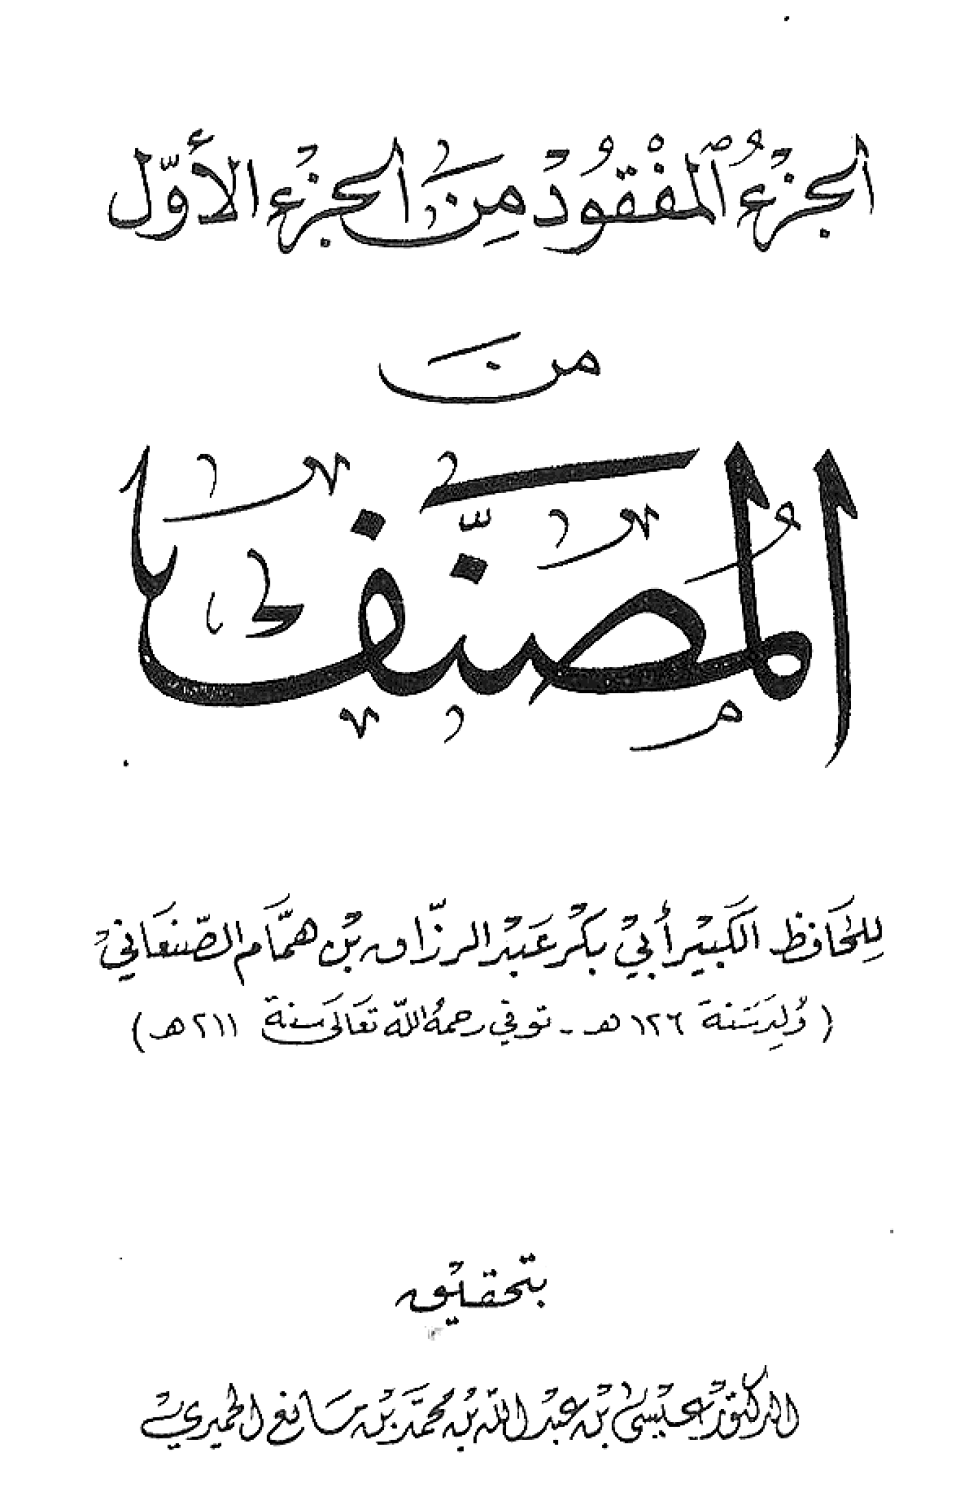 الجزءُ المفْقُودُ مِنَ الجزءِ الأوّل
من
المُصَنَّف
للحَافظ الكَبيْر أبيْ بكْر عَبْد الرزّاق بْن همَّام الصّنعَانيْ
( وُلِدَ سَنة ١٢٦ هـ - توفي رحمهُ اللّه تعَالَى سَنة ٢١١ هـ )
بتحقيْق
الدكتوْر عيْسَى بْن عبْد اللّه بْن محمَّد بْن مَانع الحميْري